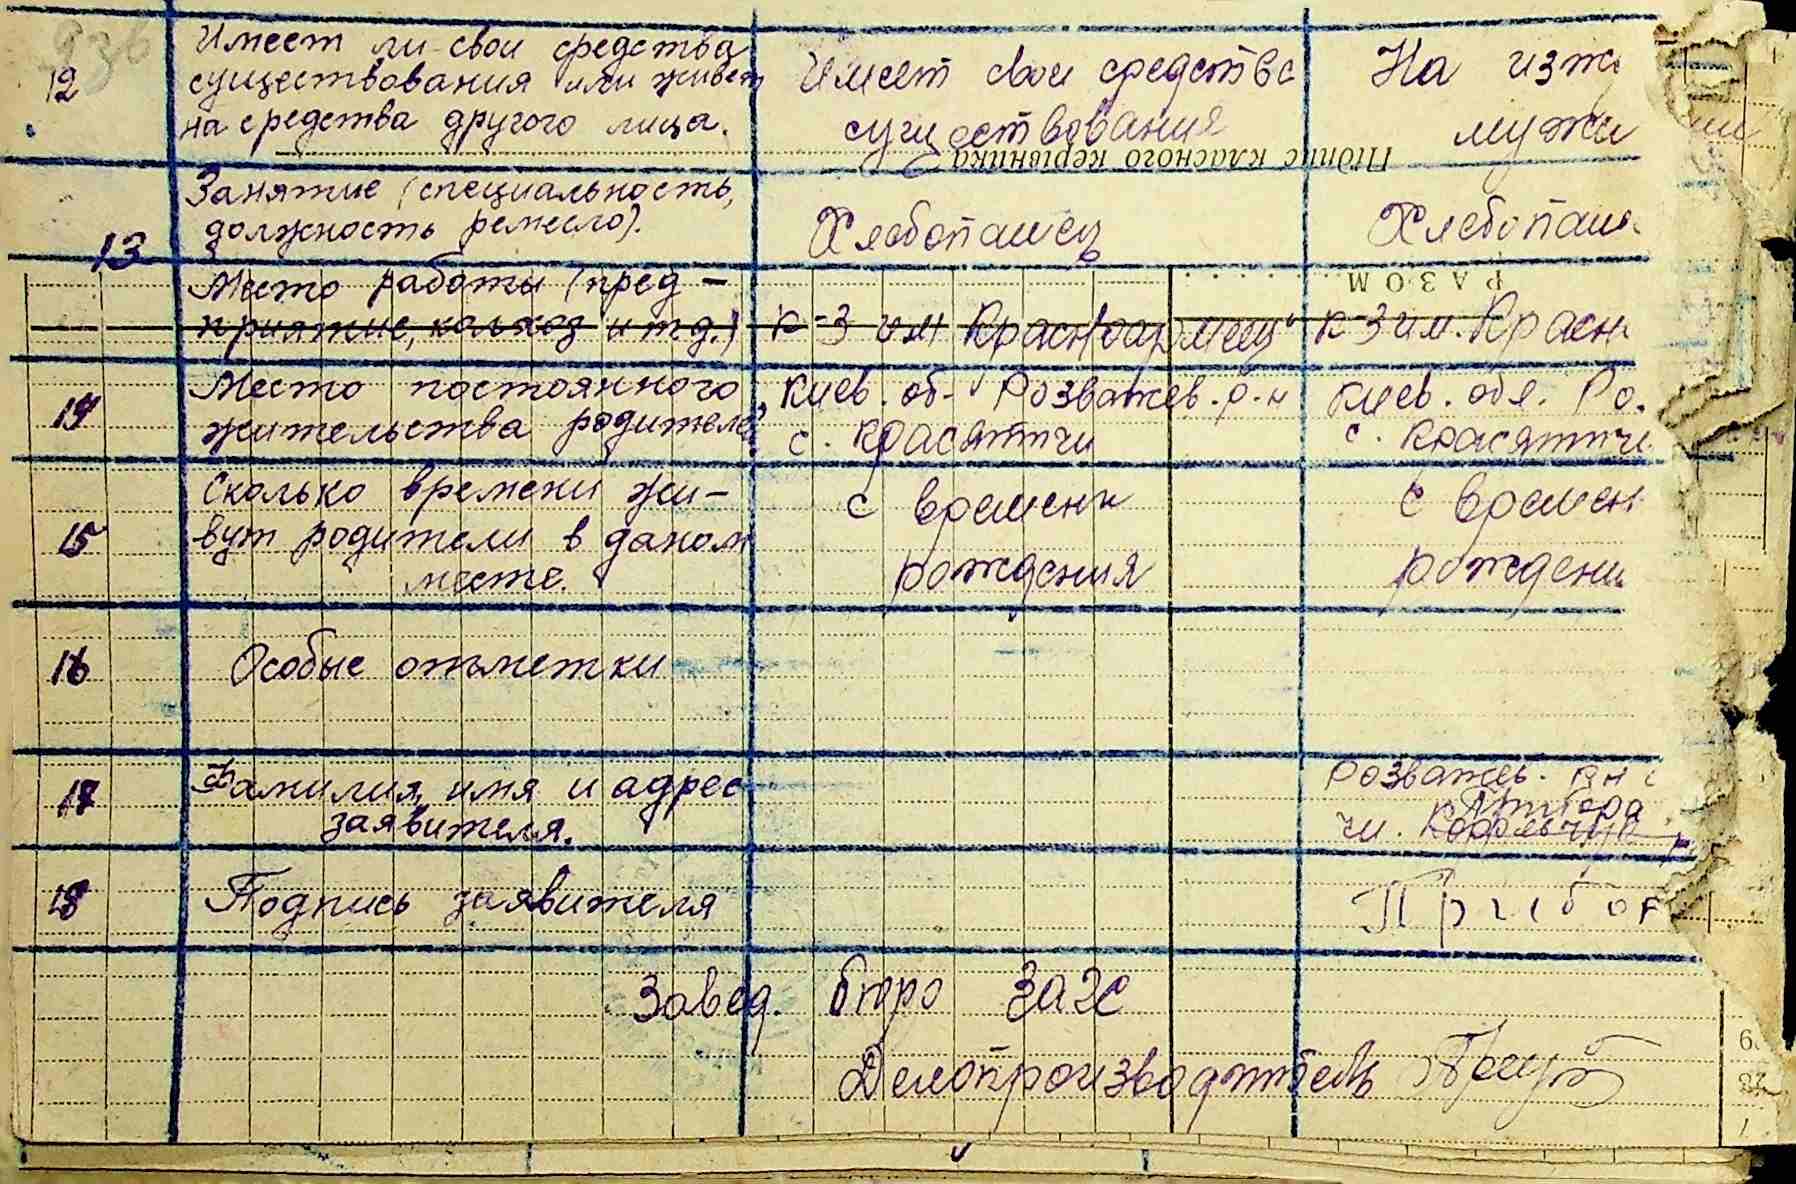 12
Имеет ли свои средства
существования или живет
на средства другого лица.
Имеет свои средства
существования
На изж
мужа
Підпис класного керівника
13
Занятие (специальность,
должность ремесло).
Хлебопашец
Хлебопаш
РАЗОМ
Место работы (пред-
приятие, колхоз и т д.)
К-З им Красноармеец
К-З им. Красн
14
Место постоянного
жительства родителей
Киев. об. Розважев. р-н
с. Красятичи
Киев. обл. Ро
с. Красятичи
15
Сколько времени жи-
вут родители в даном
месте.
с времени
рождения
с времен
рождени
16
Особые отметки
17
Фамилия, имя и адрес
заявителя.
Розважев.
18
Подпись заявителя
Завед. бюро ЗАГС
Делопроизводитель